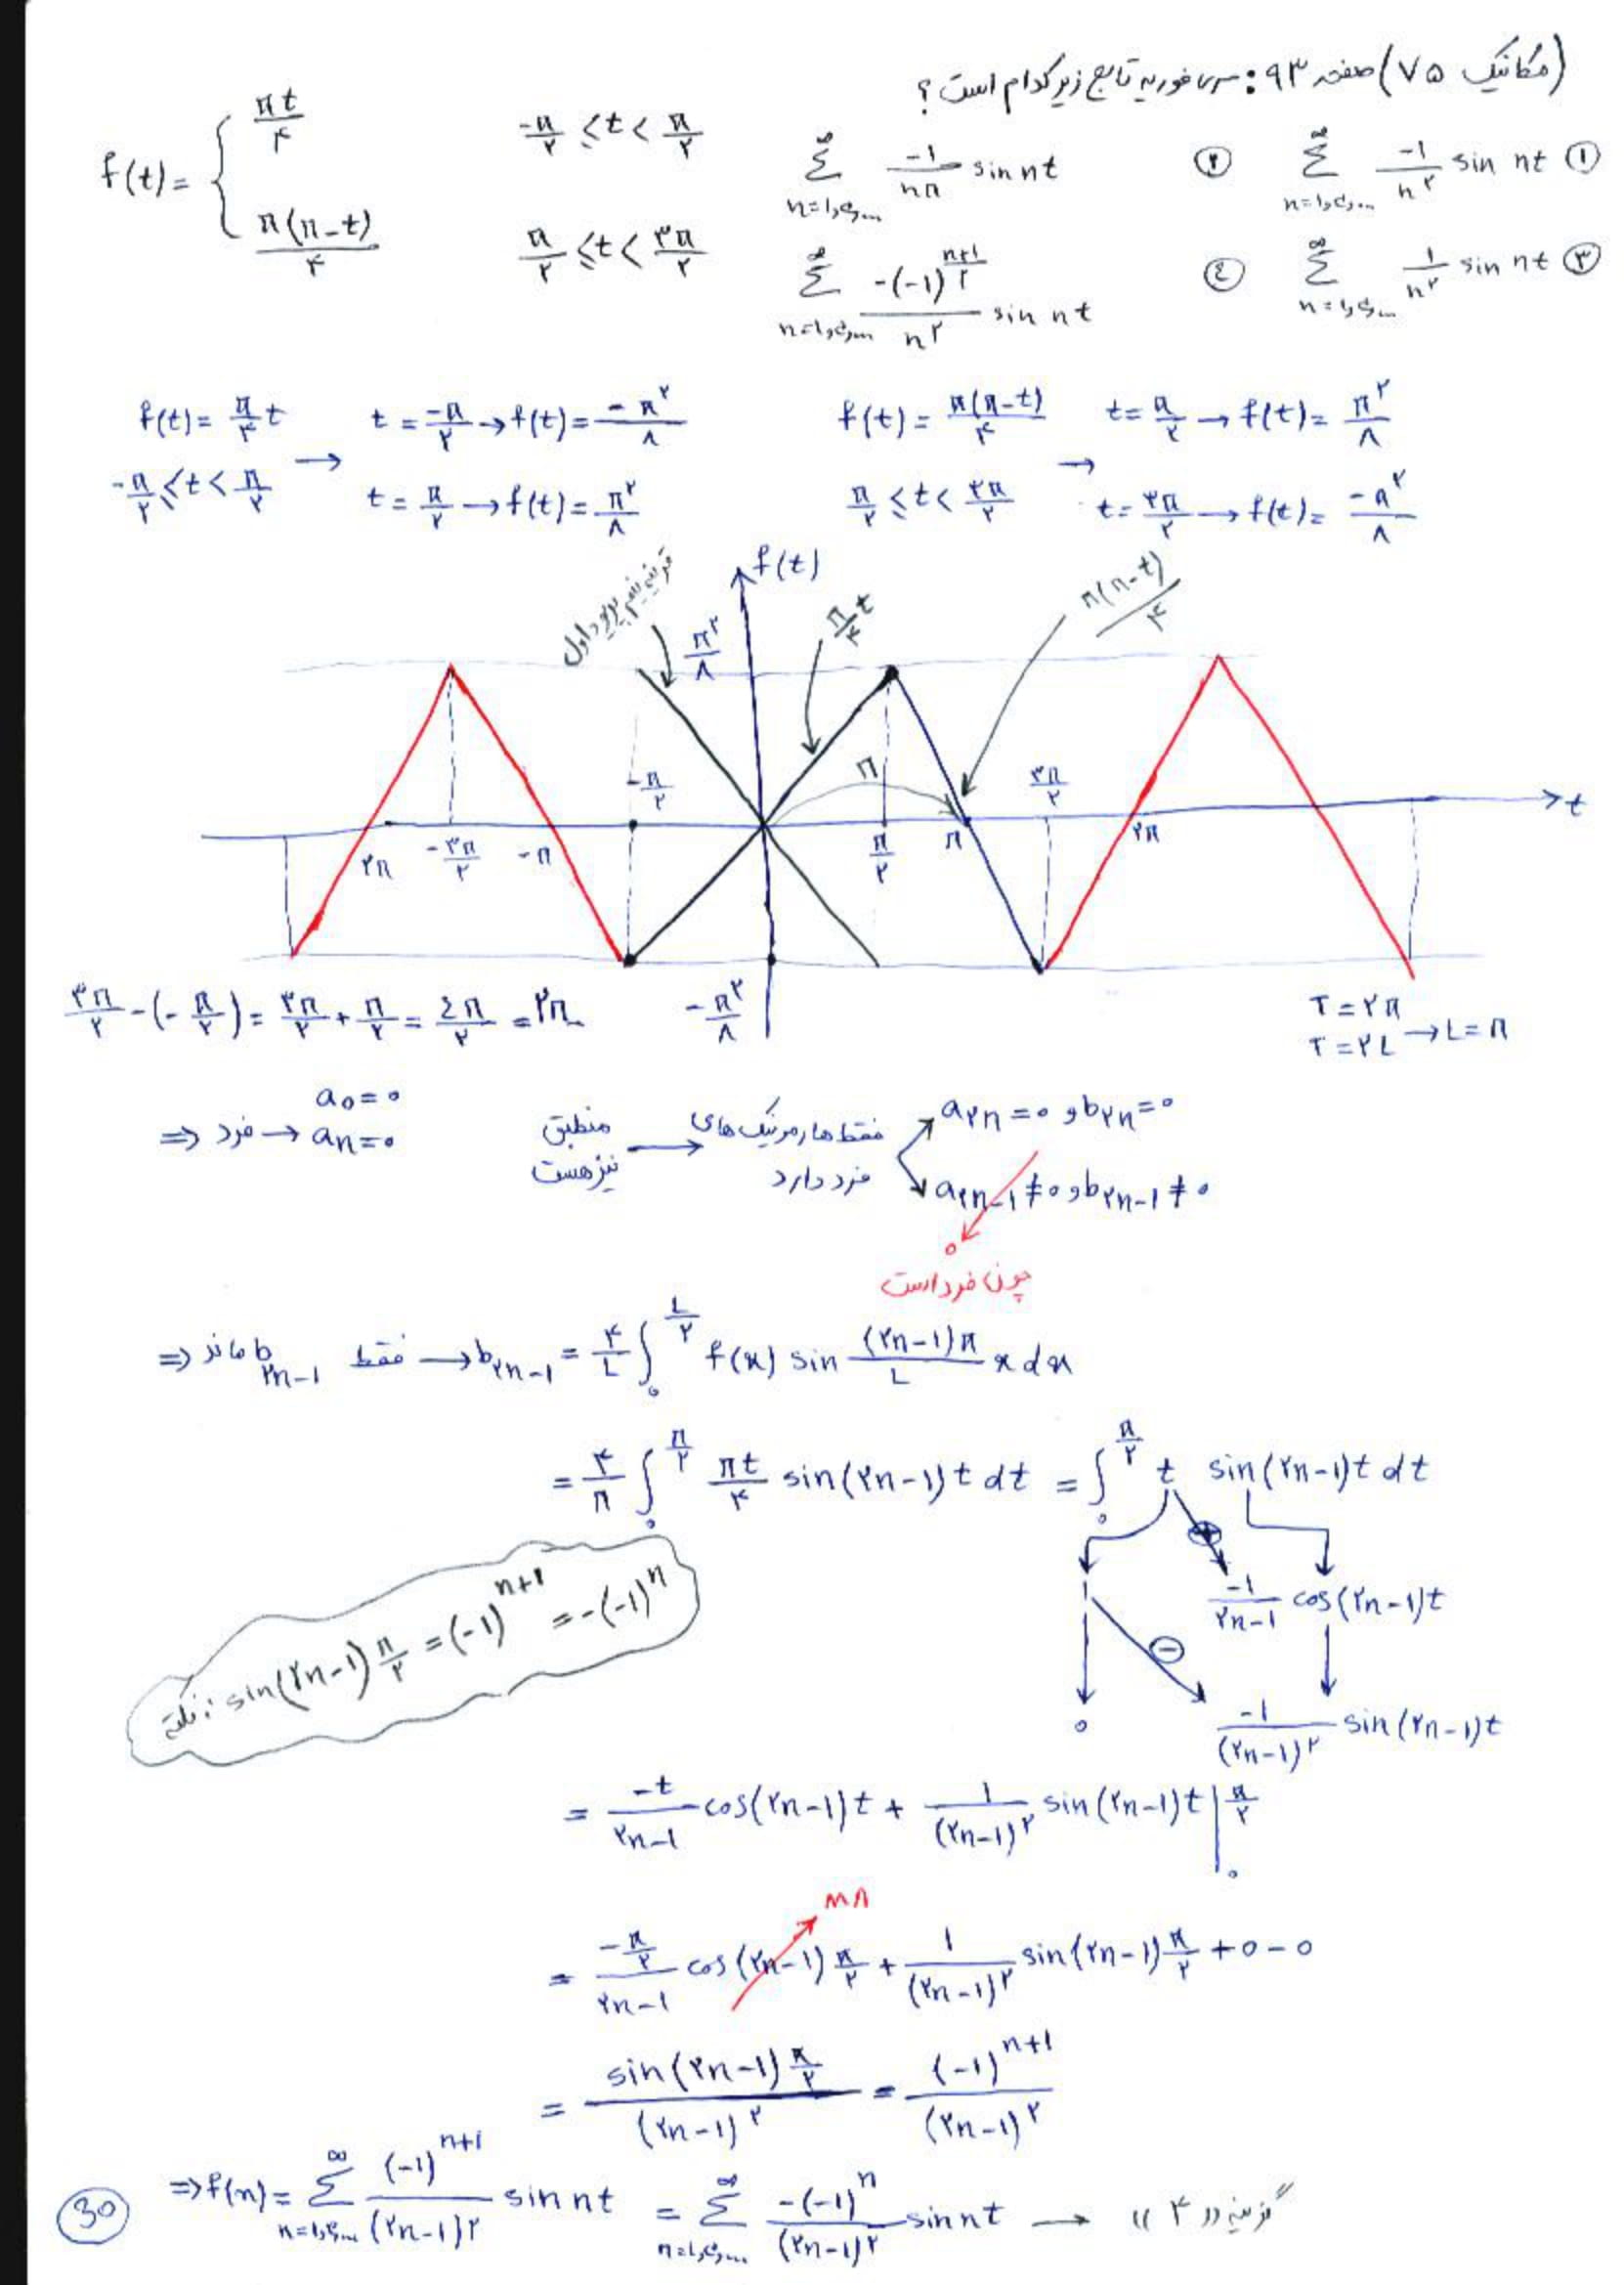 (مکانیک ۷۵) صفحه ۹۳: سری فوریه تابع زیر کدام است؟
f(t) = { πt/۴    -π/۲ ≤ t < π/۲
π(π-t)/۴    π/۲ ≤ t < ۳π/۲
① Σ_{n=۱,۳,...}^∞ -۱/n^۲ sin nt    ② Σ_{n=۱,۳,...}^∞ -۱/nπ sin nt
③ Σ_{n=۱,۳,...}^∞ ۱/n^۲ sin nt    ④ Σ_{n=۱,۳,...}^∞ -(-۱)^{(n+۱)/۲}/n^۲ sin nt
f(t) = π/۴ t    t = -π/۲ → f(t) = -π^۲/۸    f(t) = π(π-t)/۴    t = π/۲ → f(t) = π^۲/۸
-π/۲ ≤ t < π/۲ →    t = π/۲ → f(t) = π^۲/۸    π/۲ ≤ t < ۳π/۲ →    t = ۳π/۲ → f(t) = -π^۲/۸
f(t)
قرینه نیم پریود اول
π^۲/۸
π/۴ t
π(π-t)/۴
-π/۲
π
۳π/۲
t
۲π    -۳π/۲    -π    π/۲    π    ۲π
۳π/۲ - (-π/۲) = ۳π/۲ + π/۲ = ۴π/۲ = ۲π    -π^۲/۸    T = ۲π
T = ۲L → L = π
⇒ فرد → a₀ = ۰
aₙ = ۰
منطبق نیز هست → فقط هارمونیک های فرد دارد
a_{۲n} = ۰ و b_{۲n} = ۰
a_{۲n-۱} ≠ ۰ و b_{۲n-۱} ≠ ۰
۰
چون فرد است
⇒ فقط b_{۲n-۱} ماند → b_{۲n-۱} = ۴/L ∫_۰^{L/۲} f(x) sin (۲n-۱)π/L x dx
= ۴/π ∫_۰^{π/۲} πt/۴ sin(۲n-۱)t dt = ∫_۰^{π/۲} t sin(۲n-۱)t dt
+
۱    -۱/۲n-۱ cos(۲n-۱)t
−
۰    -۱/(۲n-۱)^۲ sin(۲n-۱)t
نکته: sin(۲n-۱)π/۲ = (-۱)^{n+۱} = -(-۱)^n
= -t/۲n-۱ cos(۲n-۱)t + ۱/(۲n-۱)^۲ sin(۲n-۱)t |_۰^{π/۲}
= -π/۲/۲n-۱ cos(۲n-۱)π/۲ + ۱/(۲n-۱)^۲ sin(۲n-۱)π/۲ + ۰ - ۰
= sin(۲n-۱)π/۲/(۲n-۱)^۲ = (-۱)^{n+۱}/(۲n-۱)^۲
⇒ f(n) = Σ_{n=۱,۳,...}^∞ (-۱)^{n+۱}/(۲n-۱)^۲ sin nt = Σ_{n=۱,۳,...}^∞ -(-۱)^n/(۲n-۱)^۲ sin nt → گزینه «۴»
30